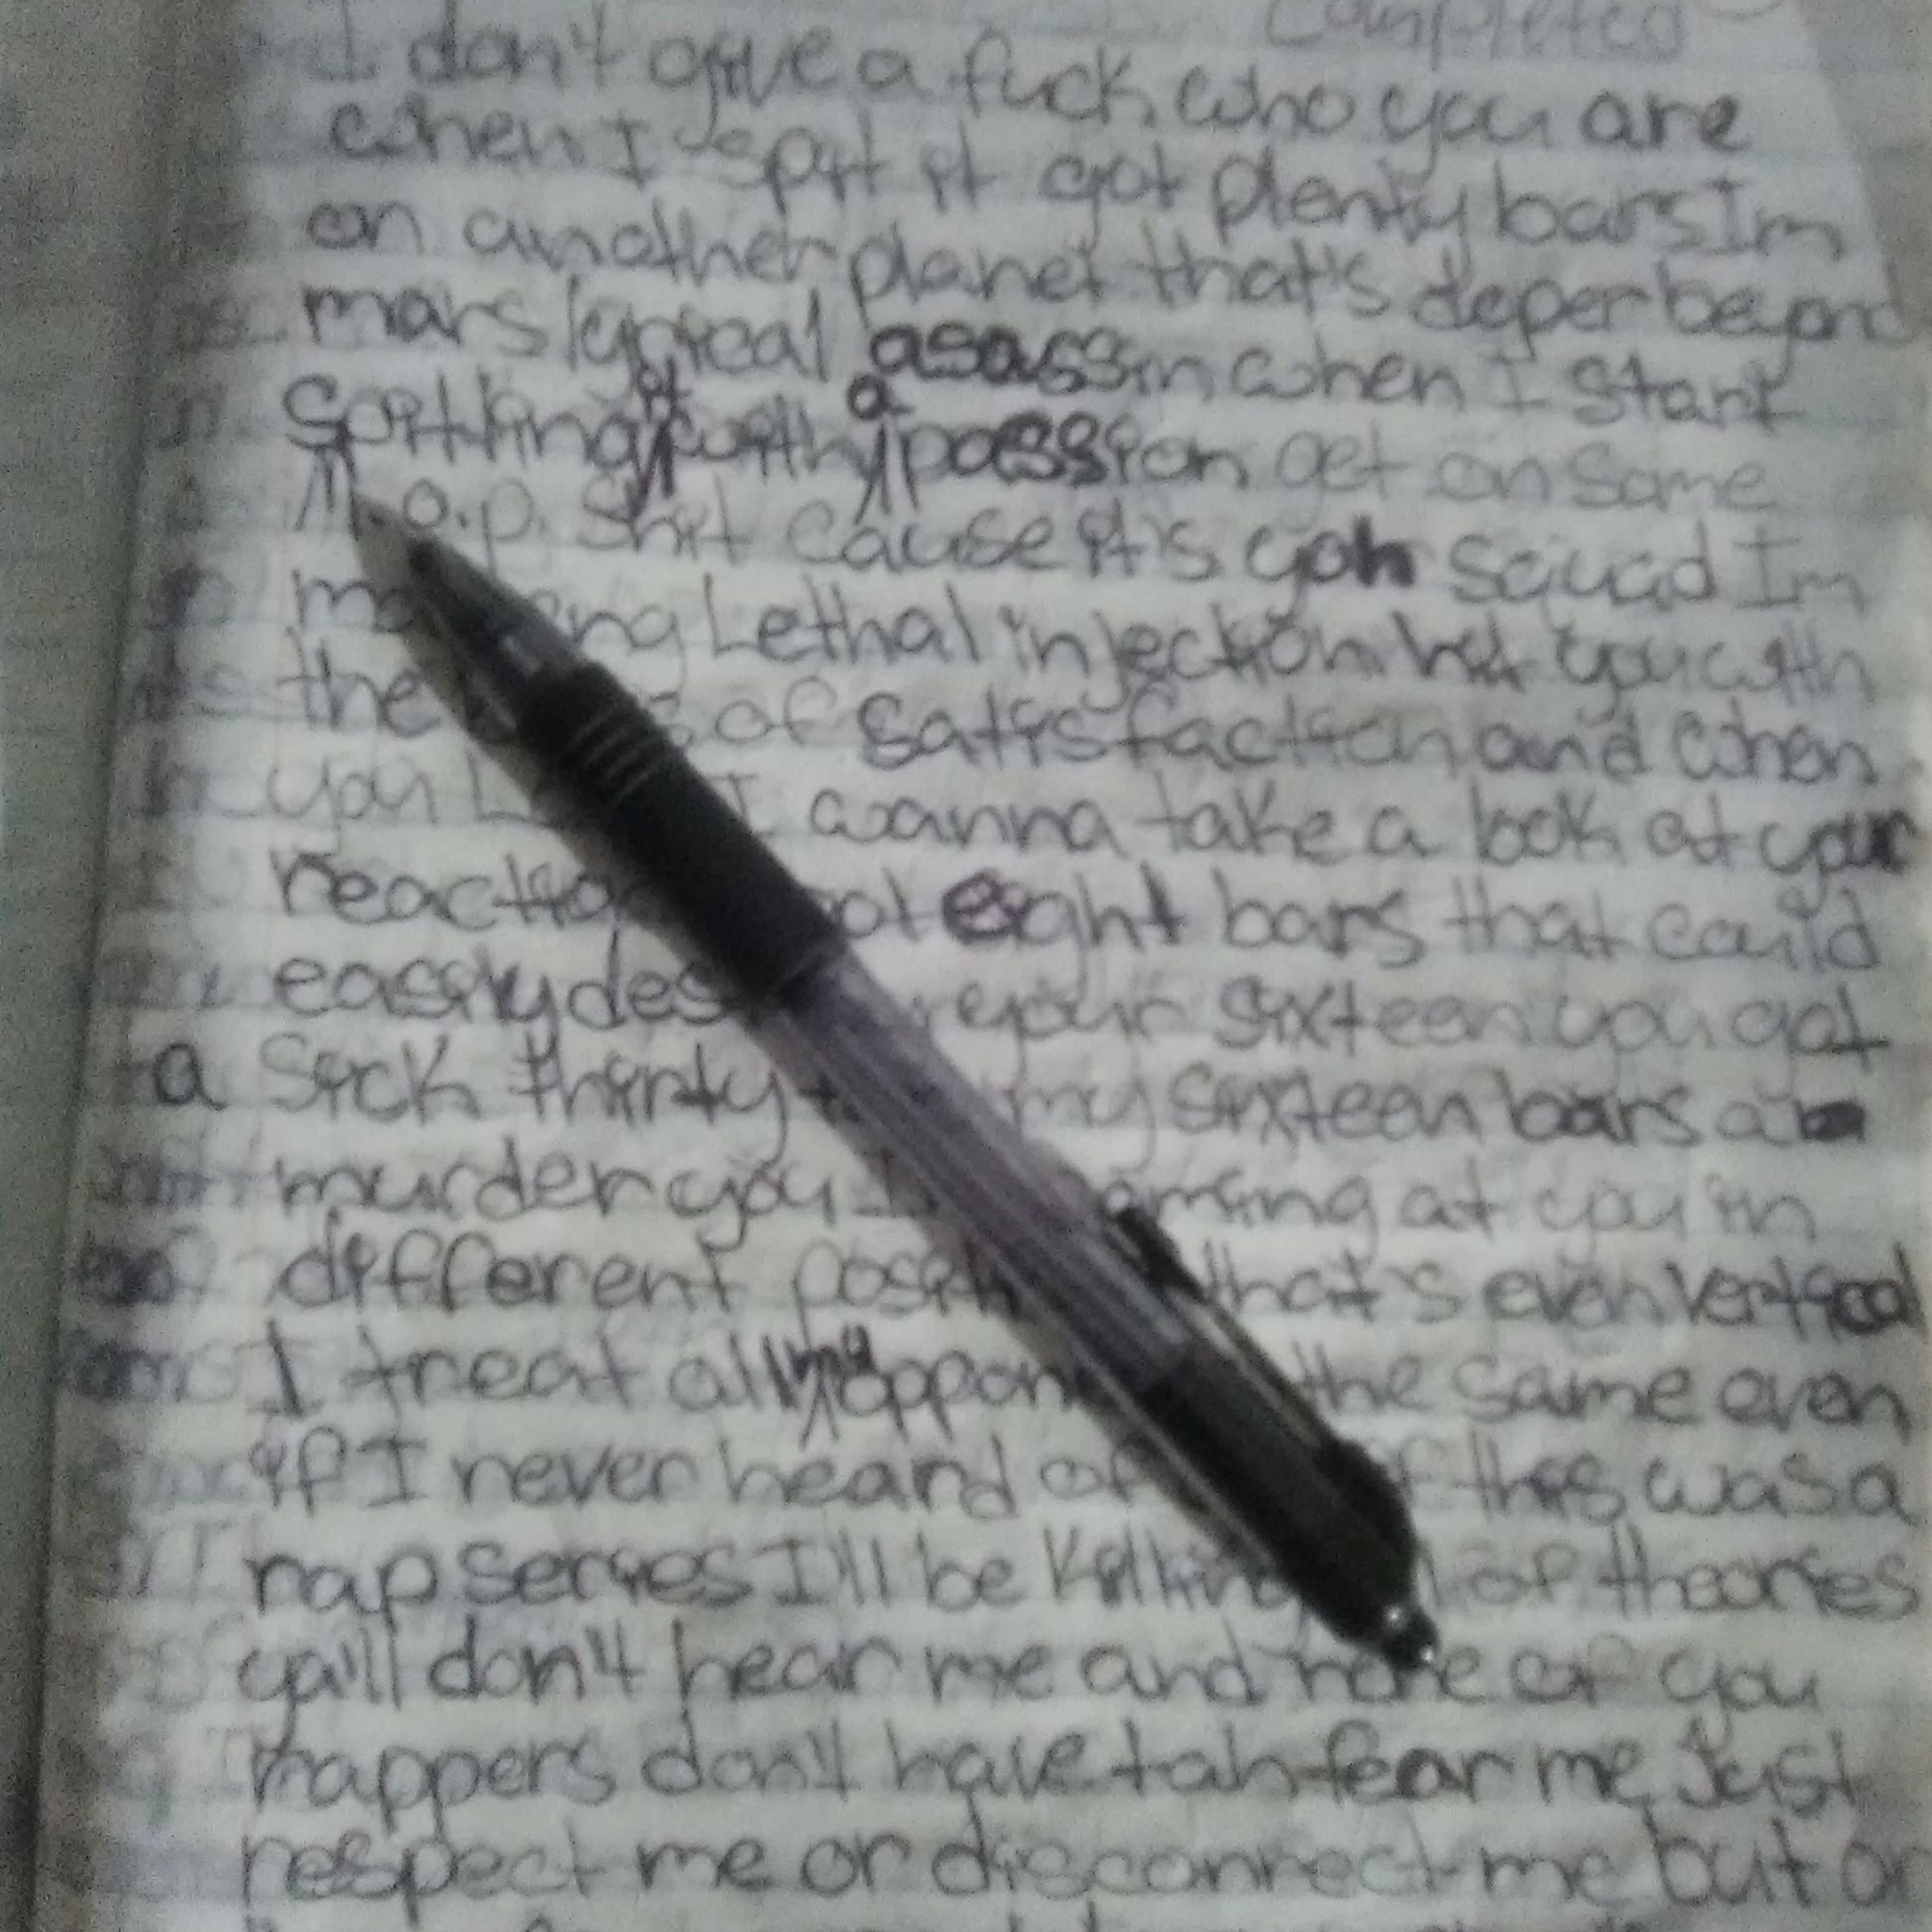 Completed
I don't give a fuck who you are
when I spit it got plenty bars Im
on another planet that's deper beyond
mars lyrical asassin when I start
Spitting it with a passion get on some
o.p. shit cause it's yoh squad Im
Lethal injection hit you with
the of satisfaction and when
you I wanna take a look at your
reactio eight bars that could
easily des your sixteen you got
a Sick thirty my sixteen bars a
murder you at you in
different posit that's even vertical
I treat all my oppon the same even
if I never heard of this was a
rap series I'll be killing of theories
ya'll don't hear me and none of you
rappers don't have tah fear me Just
respect me or disconnect me but